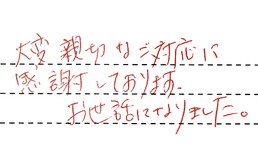 大変親切なご対応に
感謝しております。
お世話になりました。